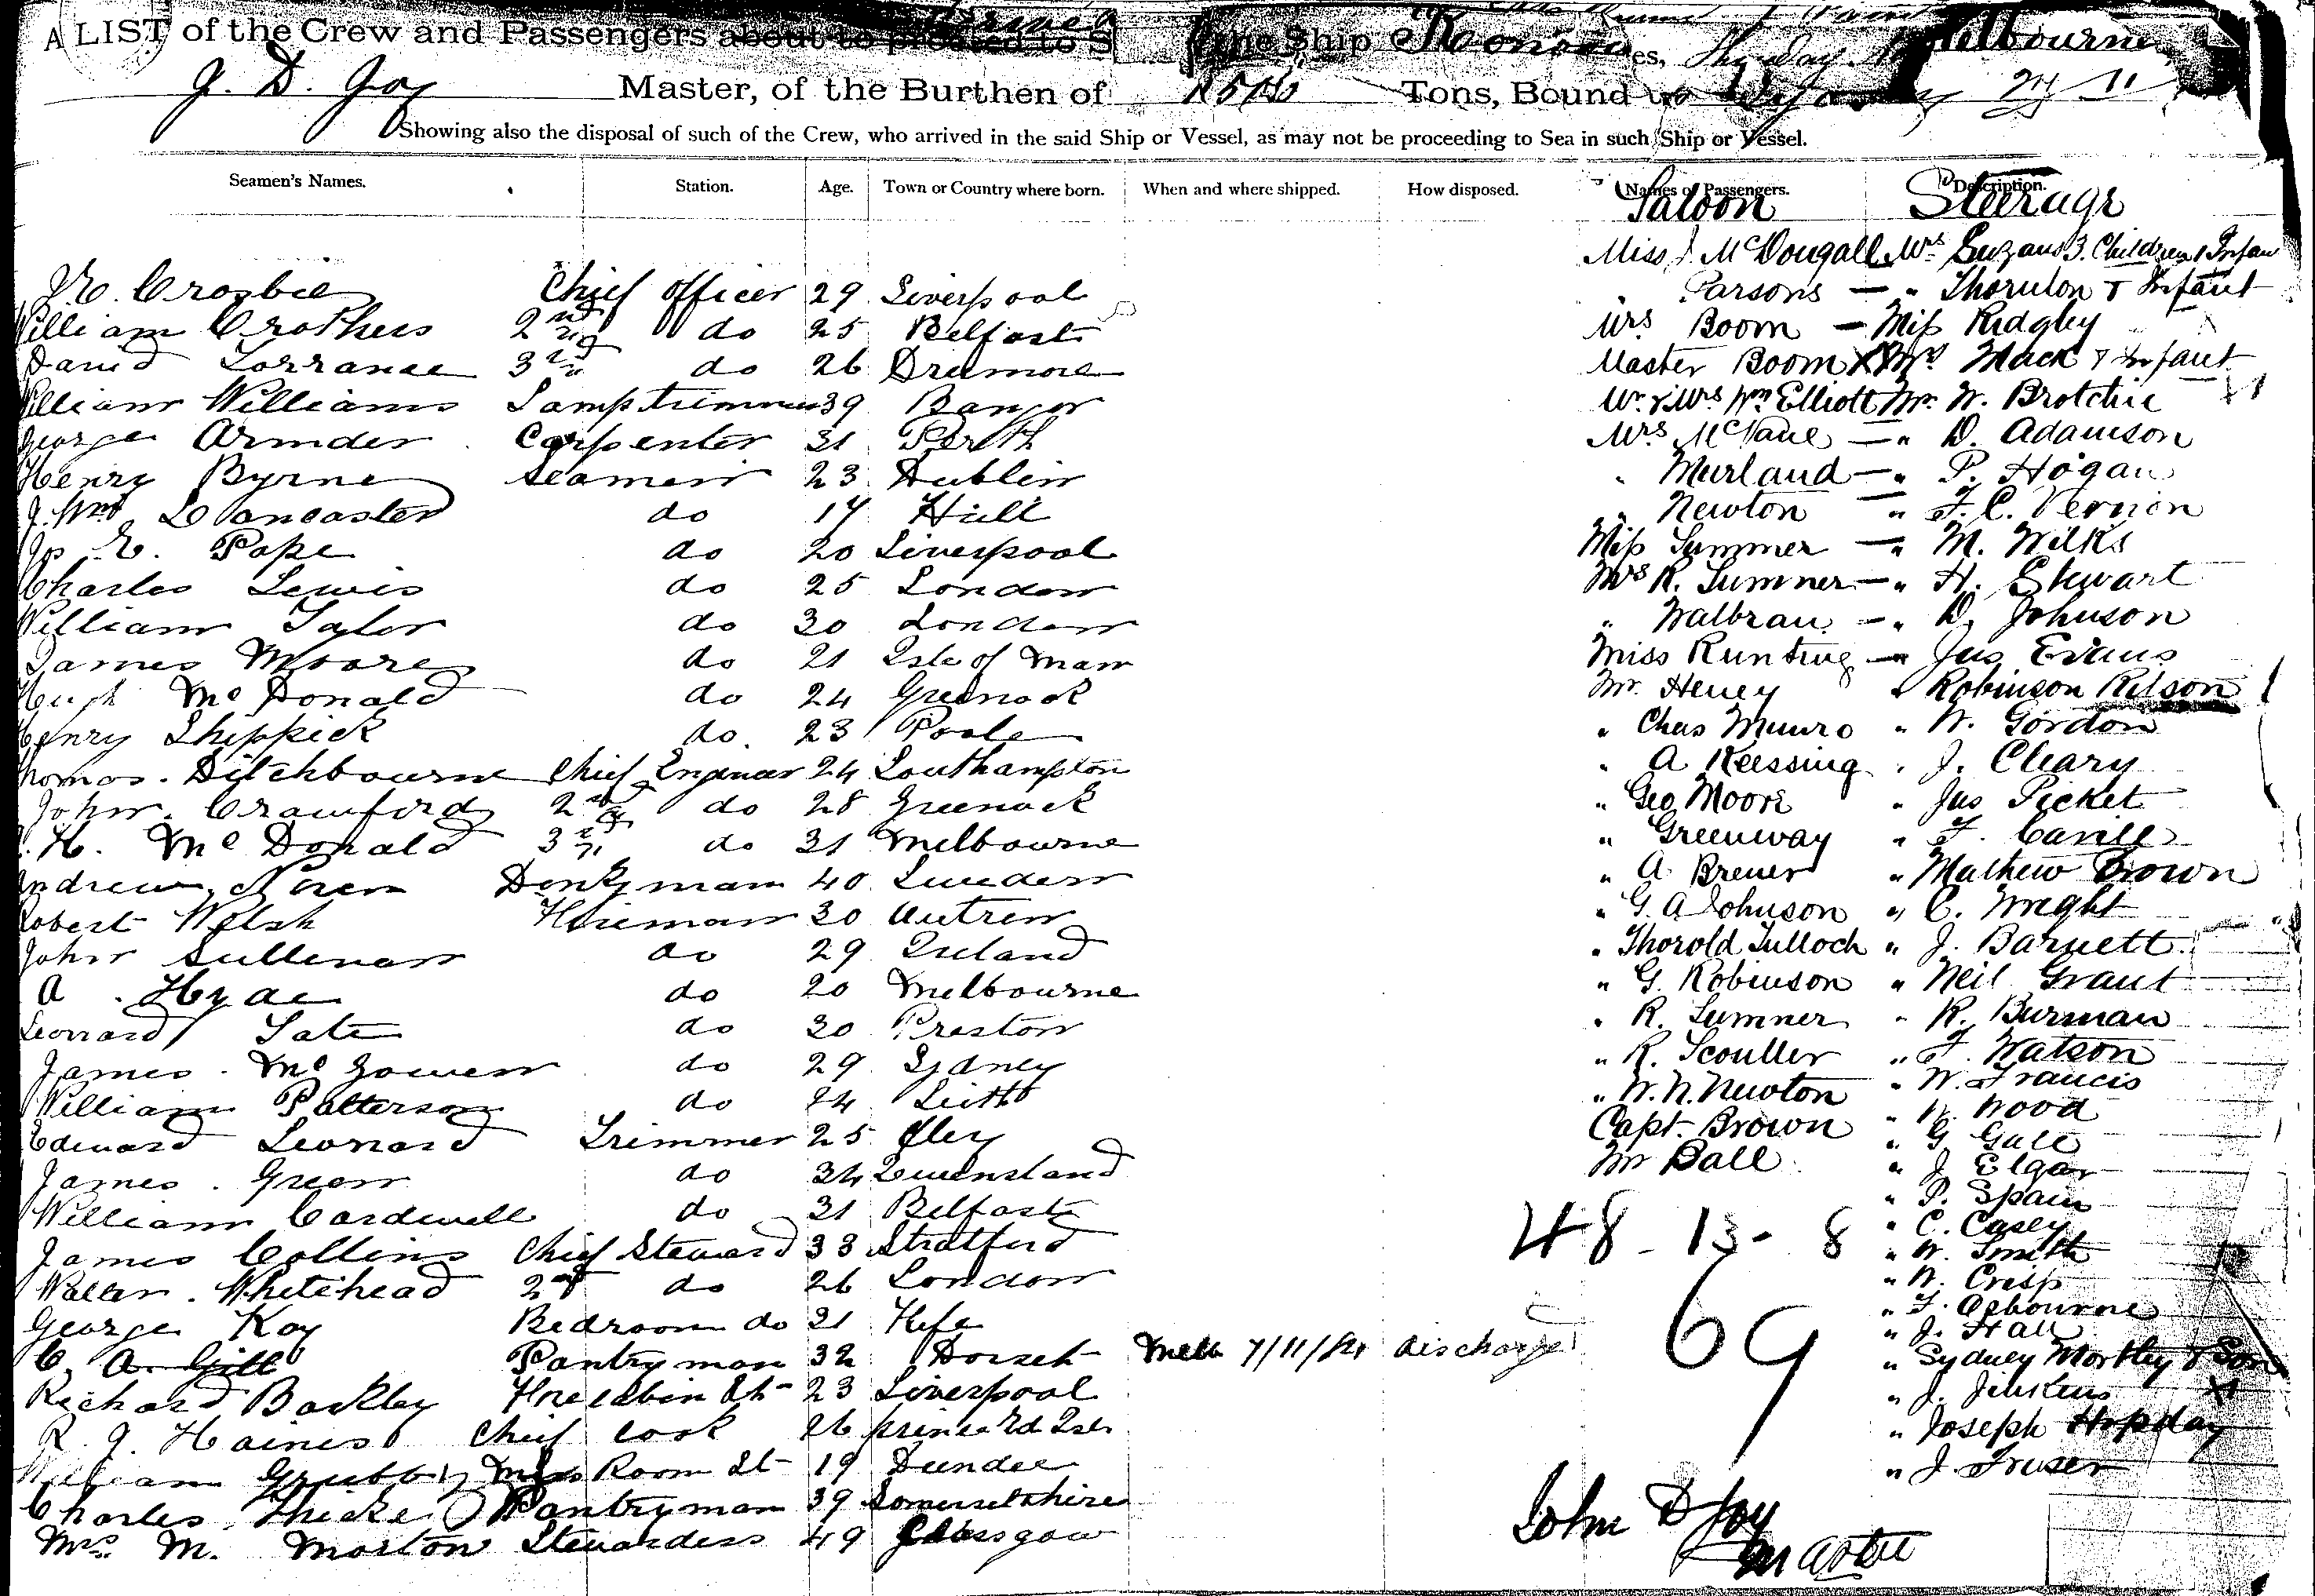 A LIST of the Crew and Passengers about to proceed to S
the Ship
Melbourne
J. D. Joy Master, of the Burthen of Tons, Bound to
Showing also the disposal of such of the Crew, who arrived in the said Ship or Vessel, as may not be proceeding to Sea in such Ship or Vessel.
Seamen's Names. Station. Age. Town or Country where born. When and where shipped. How disposed. Names of Passengers. Description.
Saloon Steerage
Crosbie Chief Officer 29 Liverpool
William Crothers 2nd do 25 Belfast
David Lorrance 3rd do 26 Dromore
William Williams Lamptrimmer 39 Bangor
George Carpenter 31 Perth
Henry Byrne Seaman 23 Dublin
J. Wm Lancaster do 17 Hull
Pope do 20 Liverpool
Charles Lewis do 25 London
William Taylor do 30 London
James Moore do 21 Isle of Man
Hugh McDonald do 24 Greenock
Henry Shippick do 23 Poole
Thomas Ditchbourne Chief Engineer 24 Southampton
John Crawford 2nd do 28 Greenock
H. McDonald 3rd do 31 Melbourne
Andrew Noren Donkyman 40 Sweden
Robert Welsh Fireman 30 Antrim
John Sullivan do 29 Ireland
A. Hyde do 20 Melbourne
Leonard Tate do 30 Preston
James McGowen do 29 Sydney
William Patterson do 24 Leith
Edward Leonard Trimmer 25
James Green do 34 Queensland
William Cardwell do 31 Belfast
James Collins Chief Steward 33 Stratford
Walter Whitehead 2nd do 26 London
George Kay Bedroom do 21 Fife
C. A. Gill Pantryman 32 Dorset Melb 7/11/84 discharge
Richard Barkley Forecabin St 23 Liverpool
R. J. Haines Chief Cook 26 prince Ed Isle
William Grubb Mess Room St 19 Dundee
Charles Thicke Pantryman 39 Somersetshire
Mrs M. Morton Stewardess 49 Glasgow
Miss J McDougall Mrs 3 Children 1 Infan
" Parsons — " Thornton & Infant
Mrs Boom — Miss Ridgley
Master Boom X Mrs Mack & Infant
Mr & Mrs Wm Elliott Mr W. Brotchie
Mrs — " D. Adamson
" Murland — " P. Hogan
" Newton — " F. C. Vernon
Miss Sumner — " M. Wilks
Mrs R. Sumner — " H. Stewart
" Walbran — " D. Johnson
Miss Runting — " Jas Evans
Mr. Heney " Robinson Kitson
" Chas Munro " W. Gordon
" A Keessing " J. Cleary
" Geo Moore " Jas Picket
" Greenway " F. Cavill
" A. Brewer " Mathew Brown
" G. A Johnson " C. Wright
" Thorold Tulloch " J. Barnett
" G. Robinson " Neil Grant
" R. Sumner " R. Burman
" R. Scouller " F. Watson
" W. N. Newton " W. Francis
Capt. Brown " W. Wood
Mr Ball " G Gale
" J Elgar
" P. Spain
" C. Casey
" W. Smith
" W. Crisp
" F. Osbourne
" J. Hall
" Sydney Mortley & Son
" J. Jenkins
" Joseph Hopday
" J. Fraser
48 - 13 - 8
69
John D Joy
Master